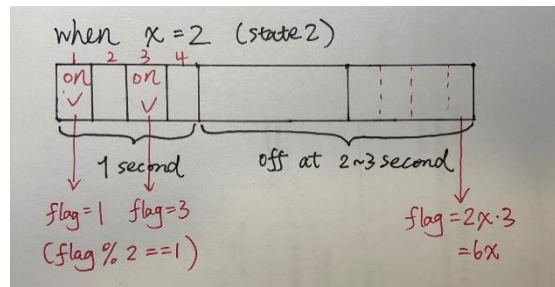 when x=2 (state2)
1 2 3 4
on on
1 second
off at 2~3 second
flag=1 flag=3
(flag % 2 ==1)
flag=2x·3
=6x